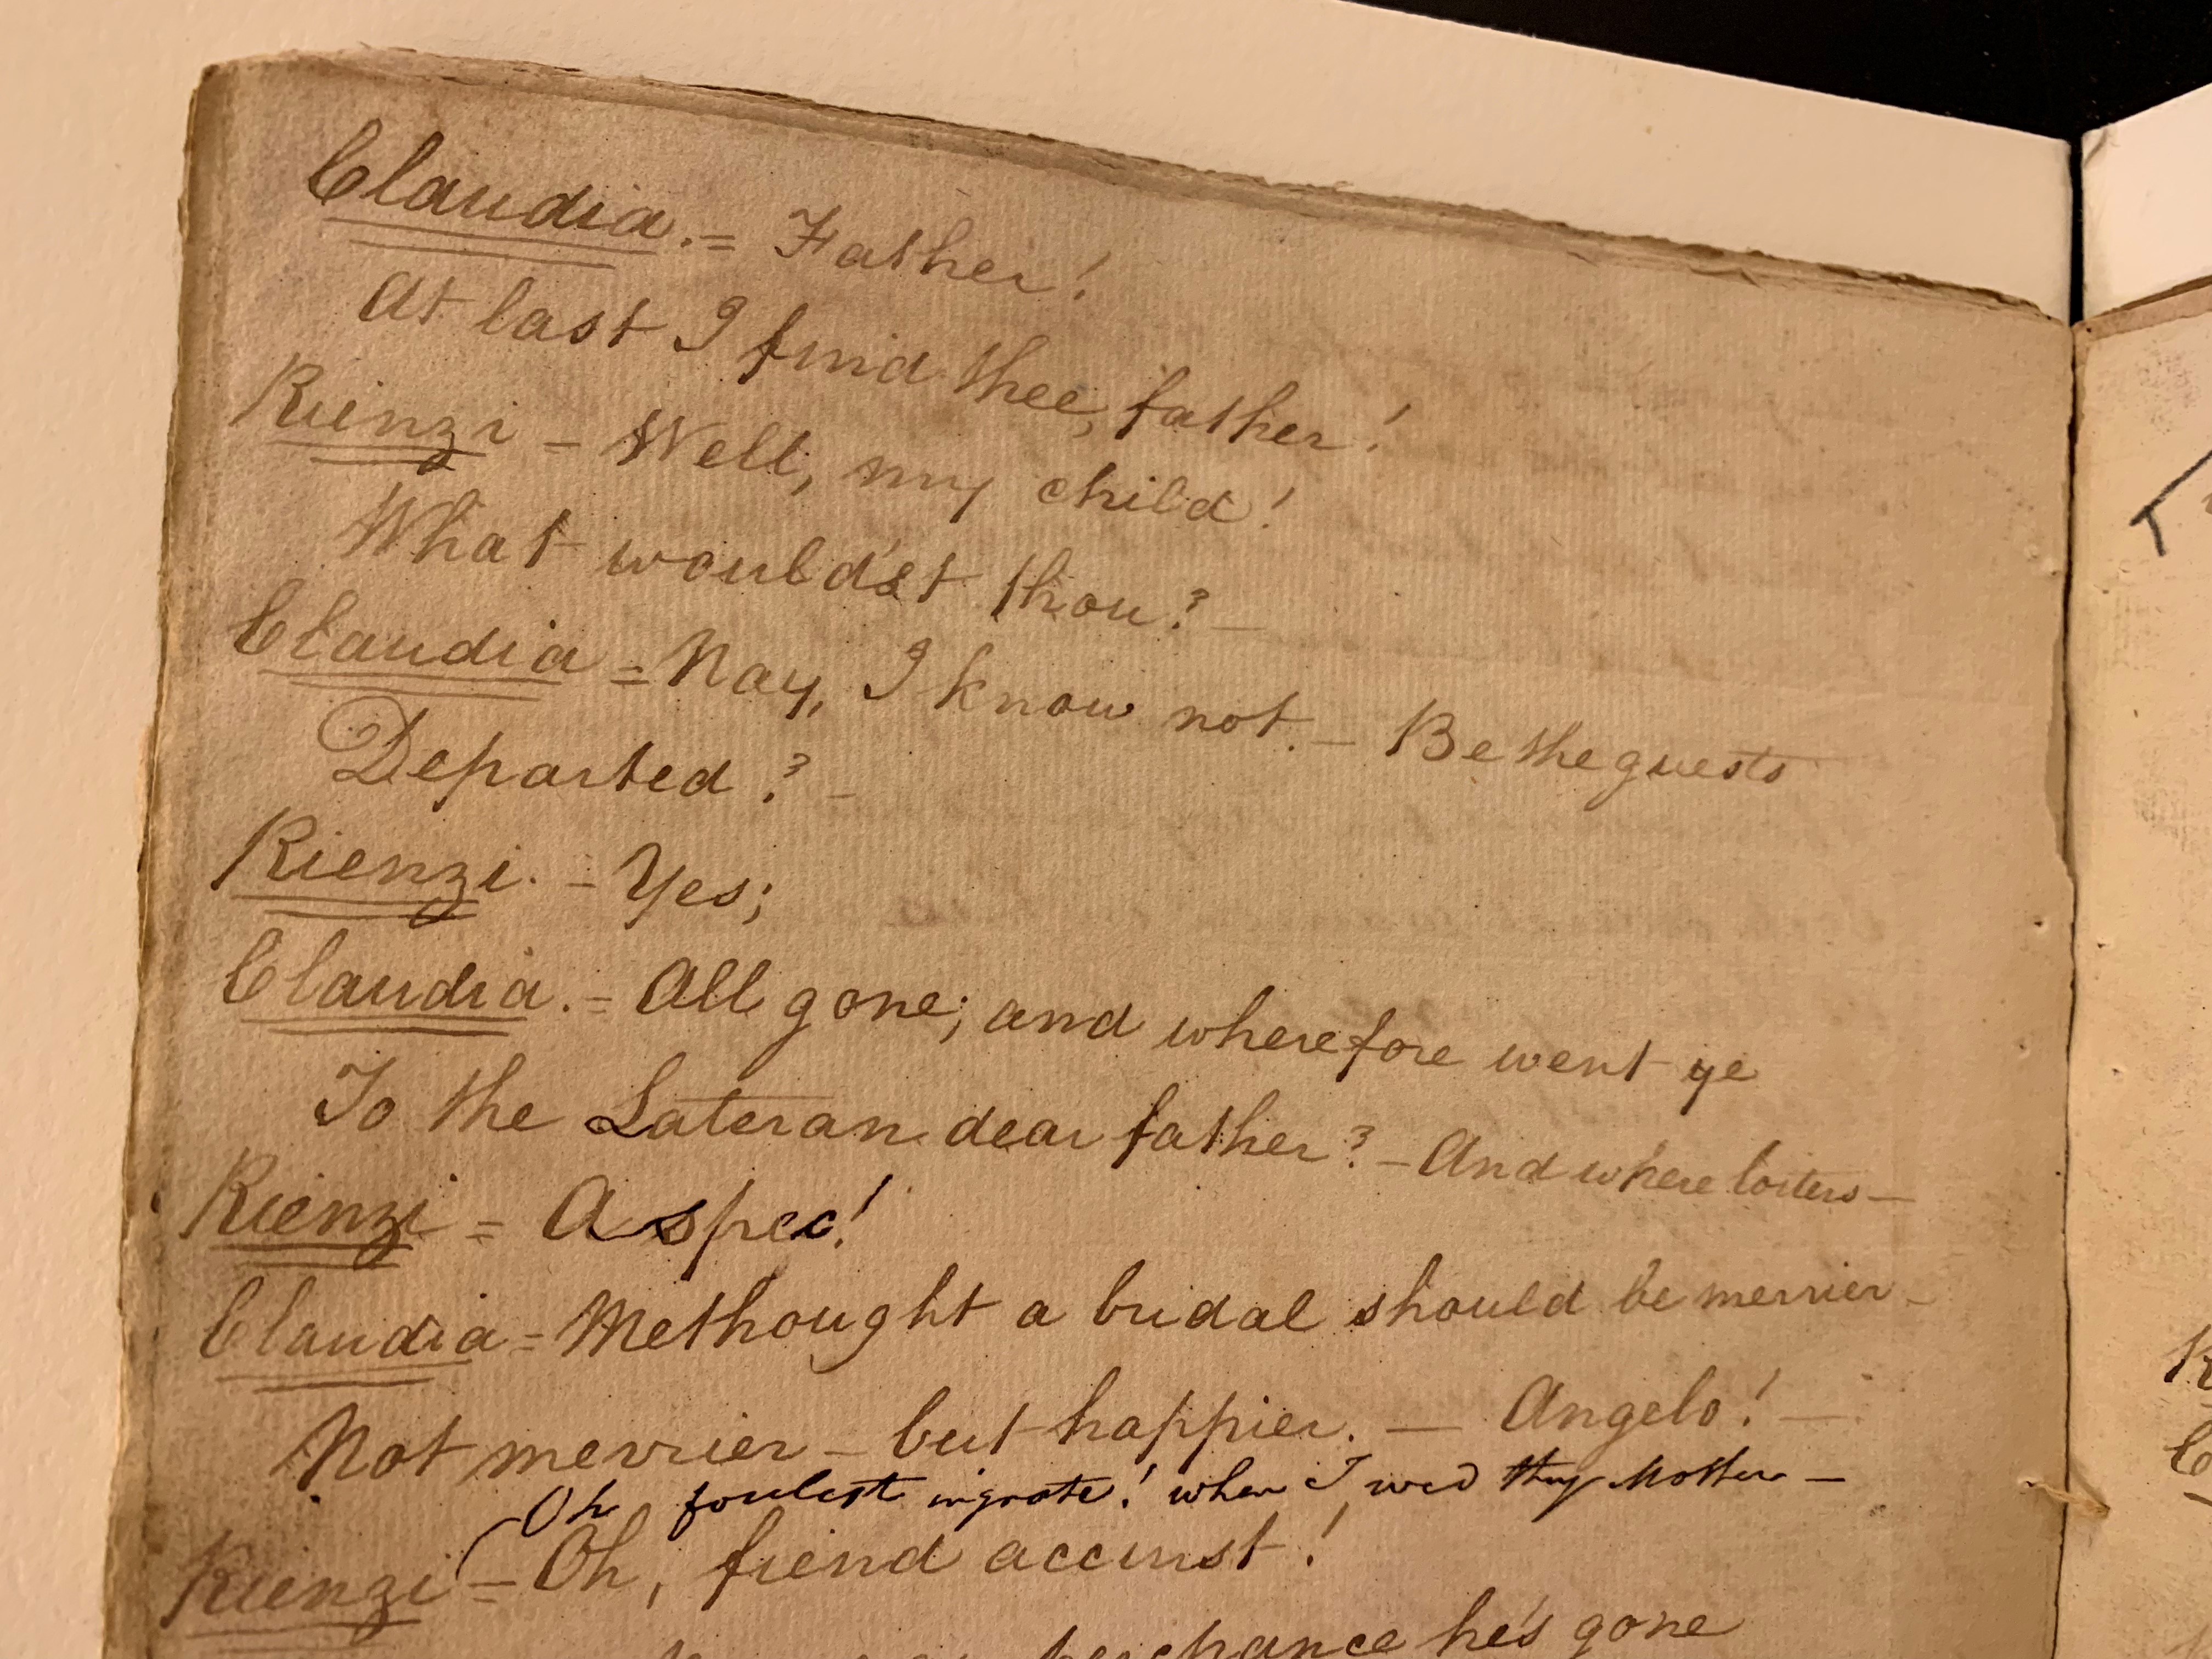 Claudia. = Father!
At last I find thee, father!
Rienzi - Well, my child!
What would'st thou? -
Claudia = Nay, I know not. - Be the guests
Departed? -
Rienzi. - Yes;
Claudia. = All gone; and wherefore went ye
To the Lateran dear father? - And where loiters -
Rienzi = A spec!
Claudia = Methought a bridal should be merrier -
Not merrier - but happier. - Angelo! -
Oh foulest ingrate! when I wed thy Mother -
Rienzi = Oh, fiend accurst!
perchance he's gone